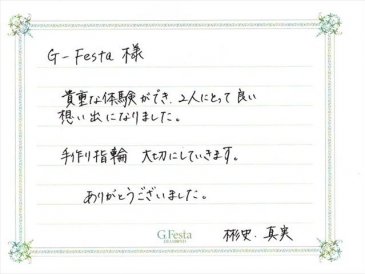 G-Festa 様
貴重な体験ができ、2人にとって良い
想い出になりました。
手作り指輪 大切にしていきます。
ありがとうございました。
G.Festa
彬史・真実